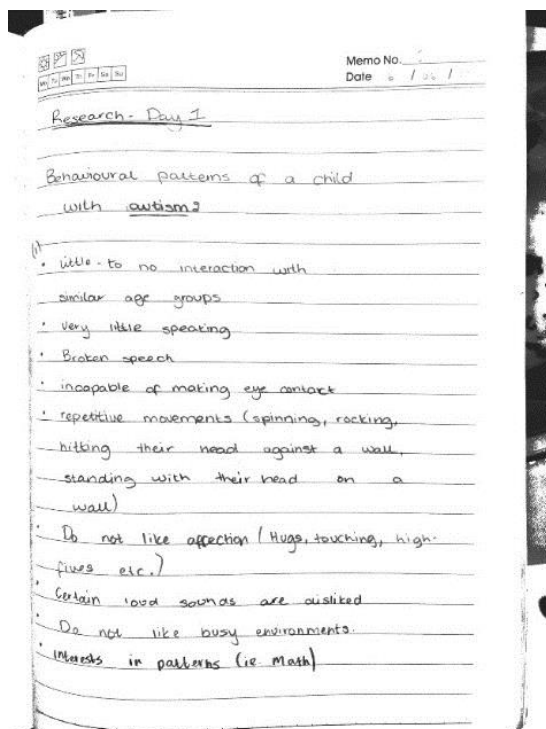 Mo Tu We Th Fr Sa Su
Memo No.
Date / 06 /
Research - Day 1
Behavioural patterns of a child
with autism?
(1)
• little-to no interaction with
similar age groups
• very little speaking
• Broken speech
• incapable of making eye contact
• repetitive movements (spinning, rocking,
hitting their head against a wall,
standing with their head on a
wall)
• Do not like affection (Hugs, touching, high-
fives etc.)
• Certain loud sounds are disliked
• Do not like busy environments.
• Interests in patterns (ie. Math)